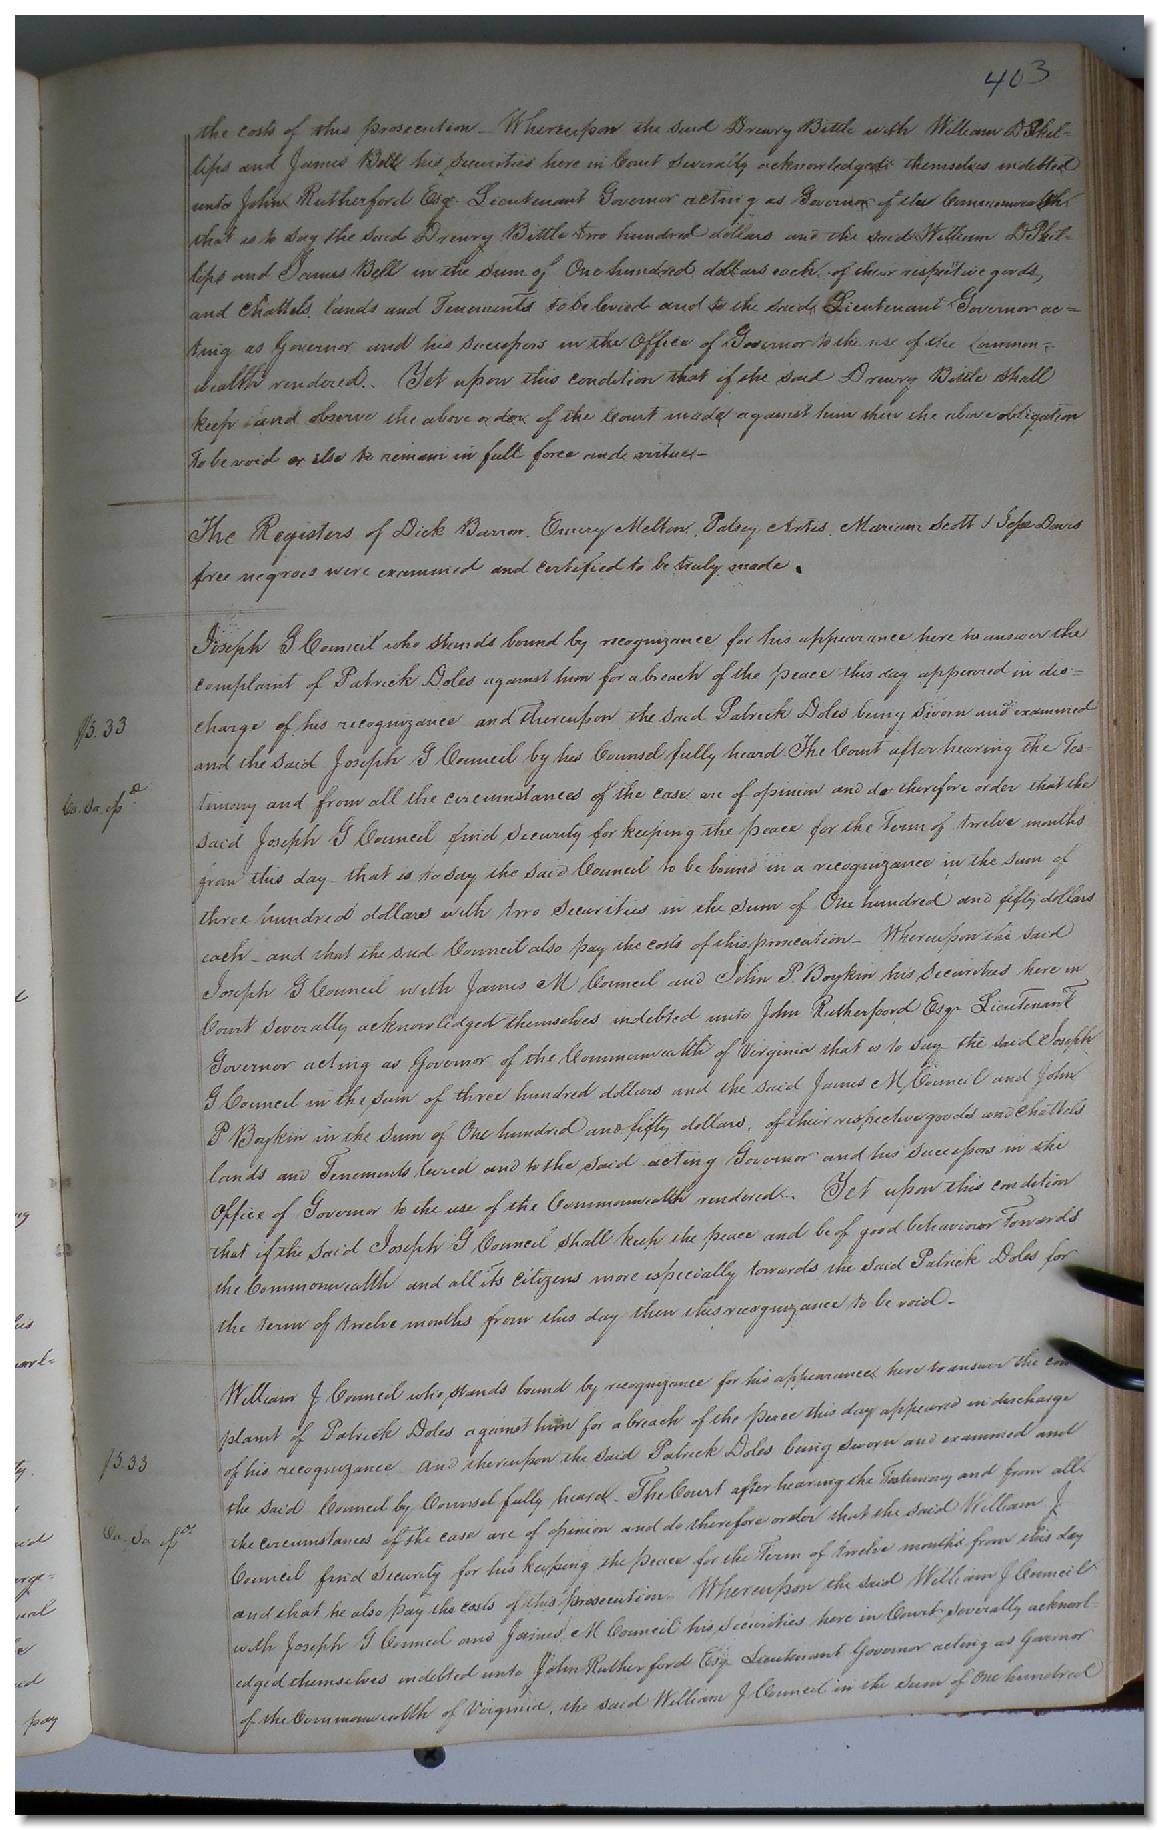 403
the costs of this prosecution – Whereupon the said Drewry Bittle with William D Phil-
lips and James Bell his securities here in Court severally acknowledged themselves indebted
unto John Rutherford Esqr. Lieutenant Governor acting as Governor of the Commonwealth
that is to say the said Drewry Bittle two hundred dollars and the said William D Phil-
lips and James Bell in the sum of One hundred dollars each, of their respective goods,
and Chattels, lands and Tenements to be levied and to the said Lieutenant Governor ac=
ting as Governor and his successors in the Office of Governor to the use of the Common=
wealth rendered. Yet upon this condition that if the said Drewry Bittle shall
keep and observe the above order of the Court made against him then the above obligation
to be void or else to remain in full force and virtue –
The Registers of Dick Barron, Emery Melton, Patsey Artes, Mariam Scott & Davis
free negroes were examined and certified to be truly made.
Joseph G Council who stands bound by recognizance for his appearance here to answer the
complaint of Patrick Doles against him for a breach of the peace this day appeared in dis=
charge of his recognizance and thereupon the said Patrick Doles being sworn and examined
$3.33
and the said Joseph G Council by his Counsel fully heard The Court after hearing the Tes-
Ca. Sa.
timony and from all the circumstances of the case are of opinion and do therefore order that the
said Joseph G Council find security for keeping the peace for the Term of twelve months
from this day that is to say the said Council to be bound in a recognizance in the sum of
three hundred dollars with two securities in the sum of One hundred and fifty dollars
each – and that the said Council also pay the costs of this prosecution – Whereupon the said
Joseph G Council with James M Council and John P. Boykin his securities here in
Court severally acknowledged themselves indebted unto John Rutherford Esqr Lieutenant
Governor acting as Governor of the Commonwealth of Virginia that is to say the said Joseph
G Council in the sum of three hundred dollars and the said James M Council and John
P Boykin in the sum of One hundred and fifty dollars, of their respective goods and Chattels
lands and Tenements levied and to the said acting Governor and his successors in the
Office of Governor to the use of the Commonwealth rendered. Yet upon this condition
that if the said Joseph G Council shall keep the peace and be of good behaviour towards
the Commonwealth and all its citizens more especially towards the said Patrick Doles for
the term of twelve months from this day then this recognizance to be void –
William J Council who stands bound by recognizance for his appearance here to answer the com
plaint of Patrick Doles against him for a breach of the peace this day appeared in discharge
$3.33
of his recognizance and thereupon the said Patrick Doles being sworn and examined and
the said Council by Counsel fully heard – The Court after hearing the Testimony and from all
Ca. Sa.
the circumstances of the case are of opinion and do therefore order that the said William J.
Council find security for his keeping the peace for the Term of twelve months from this day
and that he also pay the costs of this prosecution – Whereupon the said William J Council
with Joseph G Council and James M Council his securities here in Court severally acknowl-
edged themselves indebted unto John Rutherford Esqr Lieutenant Governor acting as Governor
of the Commonwealth of Virginia, the said William J Council in the sum of One hundred
pay